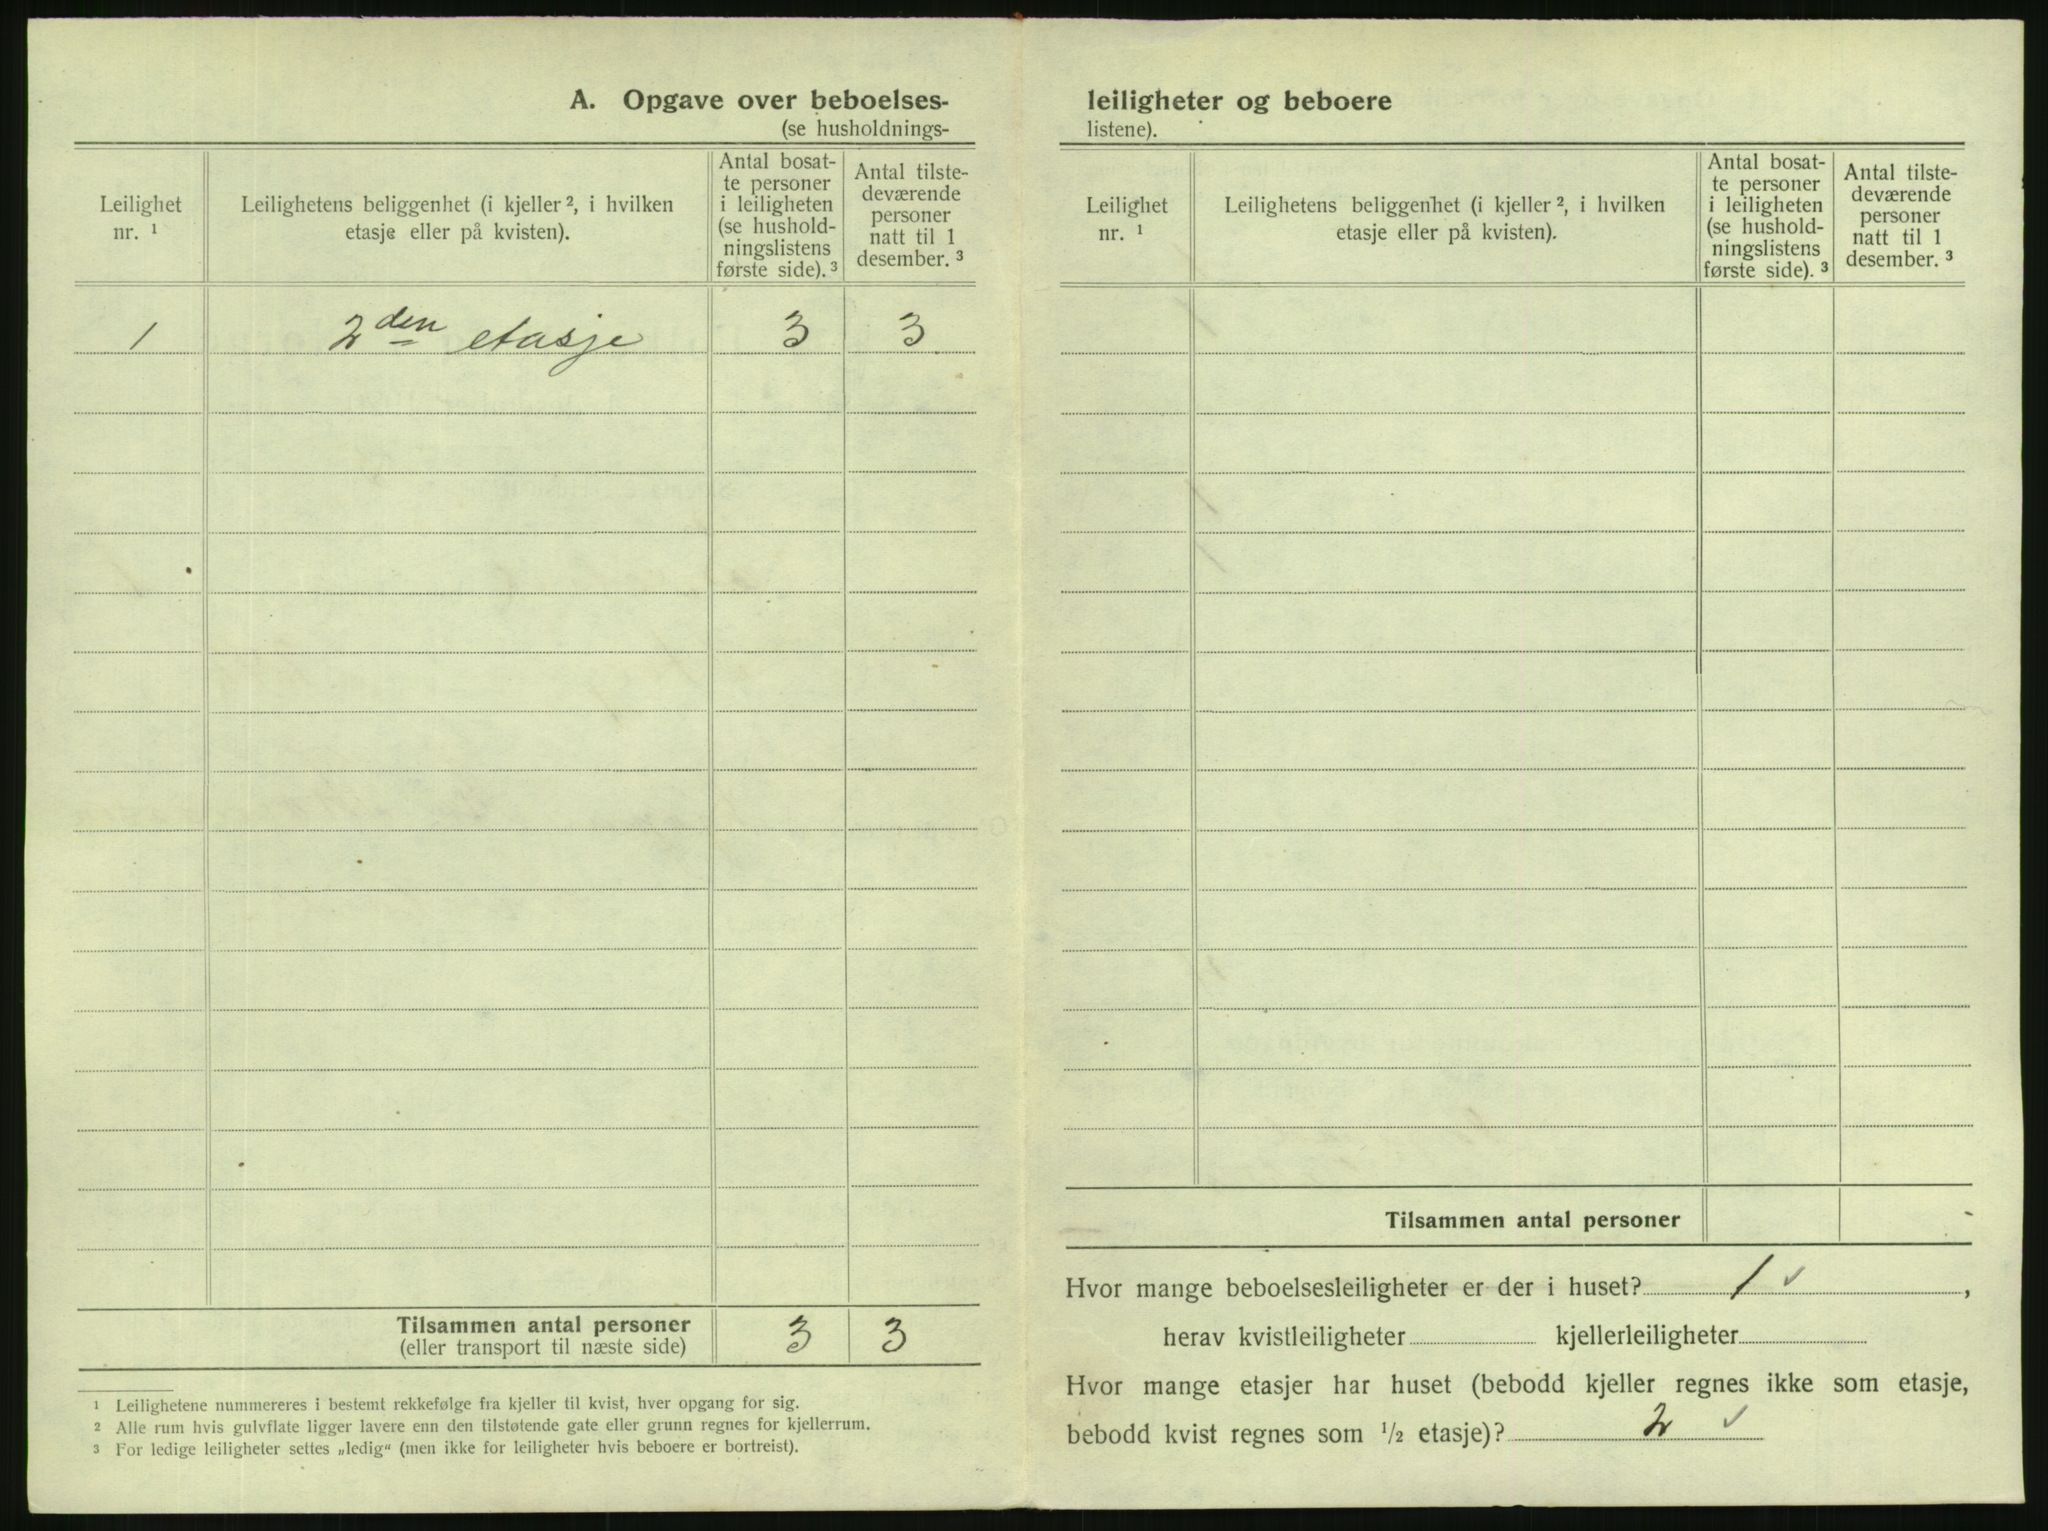 A. Opgave over beboelses-
(se husholdnings-
Leilighet
nr. ¹
Leilighetens beliggenhet (i kjeller ², i hvilken
etasje eller på kvisten).
Antal bosat-
te personer
i leiligheten
(se hushold-
ningslistens
første side). ³
Antal tilste-
deværende
personer
natt til 1
desember. ³
1 2den etasje 3 3
Tilsammen antal personer 3 3
(eller transport til næste side)
¹ Leilighetene nummereres i bestemt rekkefølge fra kjeller til kvist, hver opgang for sig.
² Alle rum hvis gulvflate ligger lavere enn den tilstøtende gate eller grunn regnes for kjellerrum.
³ For ledige leiligheter settes „ledig“ (men ikke for leiligheter hvis beboere er bortreist).
leiligheter og beboere
listene).
Leilighet
nr. ¹
Leilighetens beliggenhet (i kjeller ², i hvilken
etasje eller på kvisten).
Antal bosat-
te personer
i leiligheten
(se hushold-
ningslistens
første side). ³
Antal tilste-
deværende
personer
natt til 1
desember. ³
Tilsammen antal personer
Hvor mange beboelsesleiligheter er der i huset? 1 ✓,
herav kvistleiligheter kjellerleiligheter
Hvor mange etasjer har huset (bebodd kjeller regnes ikke som etasje,
bebodd kvist regnes som ½ etasje)? 2 ✓